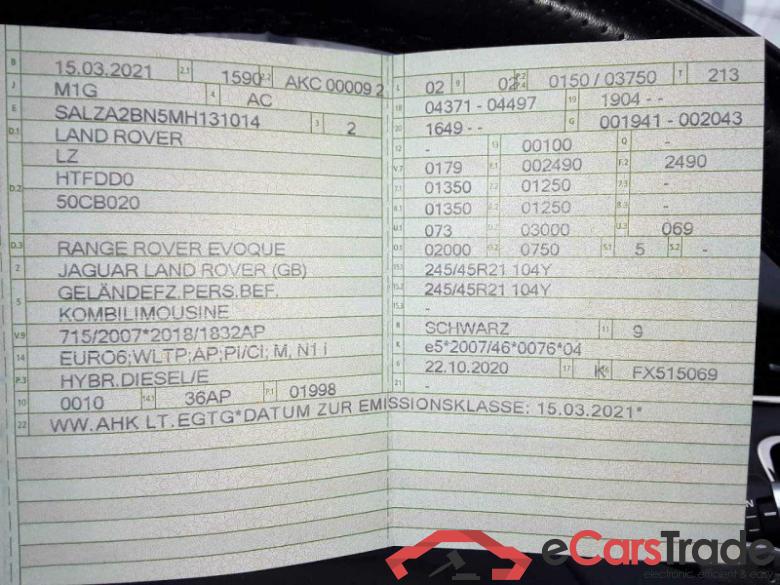 B 15.03.2021 2.1 1590 2.2 AKC 00009 2
J M1G 4 AC
E SALZA2BN5MH131014 3 2
D.1 LAND ROVER
LZ
D.2 HTFDD0
50CB020
D.3 RANGE ROVER EVOQUE
2 JAGUAR LAND ROVER (GB)
5 GELÄNDEFZ.PERS.BEF.
KOMBILIMOUSINE
V.9 715/2007*2018/1832AP
14 EURO6;WLTP;AP;PI/CI; M, N1 I
P.3 HYBR.DIESEL/E
10 0010 14.1 36AP P.1 01998
22 WW.AHK LT.EGTG*DATUM ZUR EMISSIONSKLASSE: 15.03.2021*
L 02 9 02 P.2 P.4 0150 / 03750 T 213
18 04371 - 04497 19 1904 - -
20 1649 - - G 001941 - 002043
12 - 13 00100 Q -
V.7 0179 F.1 002490 F.2 2490
7.1 01350 7.2 01250 7.3 -
8.1 01350 8.2 01250 8.3 -
U.1 073 U.2 03000 U.3 069
O.1 02000 O.2 0750 S.1 5 S.2 -
15.1 245/45R21 104Y
15.2 245/45R21 104Y
15.3 -
R SCHWARZ 11 9
K e5*2007/46*0076*04
6 22.10.2020 17 K 16 FX515069
21 -
eCarsTrade
electronic, efficient & easy